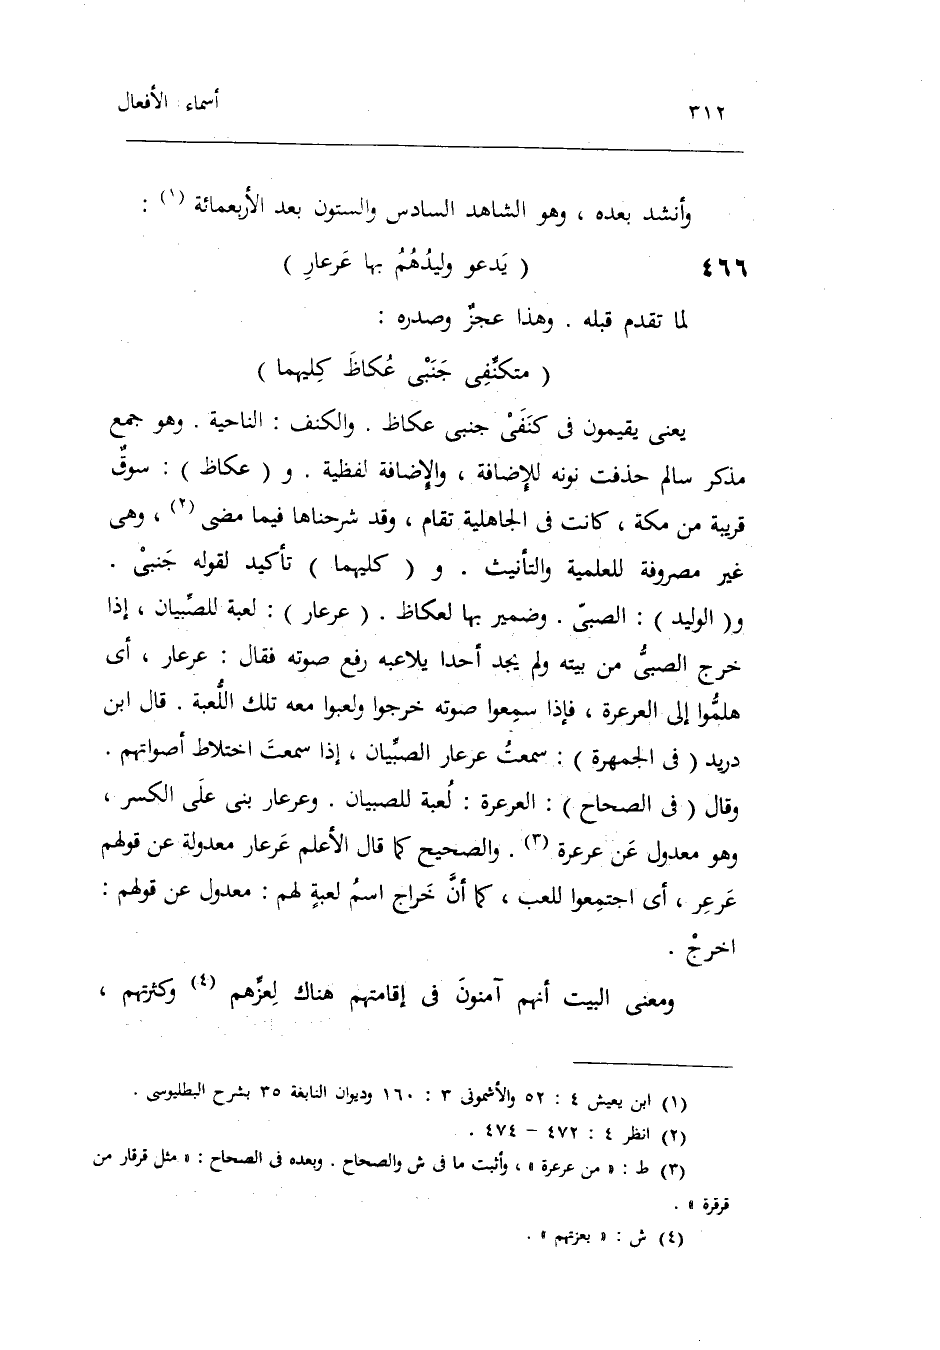 ٣١٢ أسماء الأفعال
وأنشد بعده ، وهو الشاهد السادس والستون بعد الأربعمائة (١) :
٤٦٦ ( يَدعو وليدُهُمُ بها عَرعارِ )
لما تقدم قبله . وهذا عجزٌ وصدره :
( متكنِّفِى جَنَبْى عُكاظَ كِليهما )
يعنى يقيمون فى كنَفَىْ جنبى عكاظ . والكنف : الناحية . وهو جمع
مذكر سالم حذفت نونه للإضافة ، والإضافة لفظية . و ( عكاظ ) : سوقٌ
قريبة من مكة ، كانت فى الجاهلية تقام ، وقد شرحناها فيما مضى (٢) ، وهى
غير مصروفة للعلمية والتأنيث . و ( كليهما ) تأكيد لقوله جَنبىْ .
و( الوليد ) : الصبىّ . وضمير بها لعكاظ . ( عرعار ) : لعبة للصِّبيان ، إذا
خرج الصبىُّ من بيته ولم يجد أحدا يلاعبه رفع صوته فقال : عرعار ، أى
هلمُّوا إلى العرعرة ، فإذا سمِعوا صوته خرجوا ولعبوا معه تلك اللُّعبة . قال ابن
دريد ( فى الجمهرة ) : سمعتُ عرعار الصبِّيان ، إذا سمعتَ اختلاط أصواتهم .
وقال ( فى الصحاح ) : العرعرة : لُعبة للصبيان . وعرعار بنى علَى الكسر ،
وهو معدول عَن عرعرة (٣) . والصحيح كما قال الأعلم عَرعار معدولة عن قولهم
عَرعِر ، أى اجتمِعوا للعب ، كما أنَّ خَراج اسمُ لعبةٍ لهم : معدول عن قولهم :
اخرجْ .
ومعنى البيت أنهم آمنونَ فى إقامتهم هناك لِعزِّهم (٤) وكثرتهم ،
(١) ابن يعيش ٤ : ٥٢ والأشمونى ٣ : ١٦٠ وديوان النابغة ٣٥ بشرح البطليوسى .
(٢) انظر ٤ : ٤٧٢ – ٤٧٤ .
(٣) ط : « من عرعرة » ، وأثبت ما فى ش والصحاح . وبعده فى الصحاح : « مثل قرقار من
قرقرة » .
(٤) ش : « بعزتهم » .